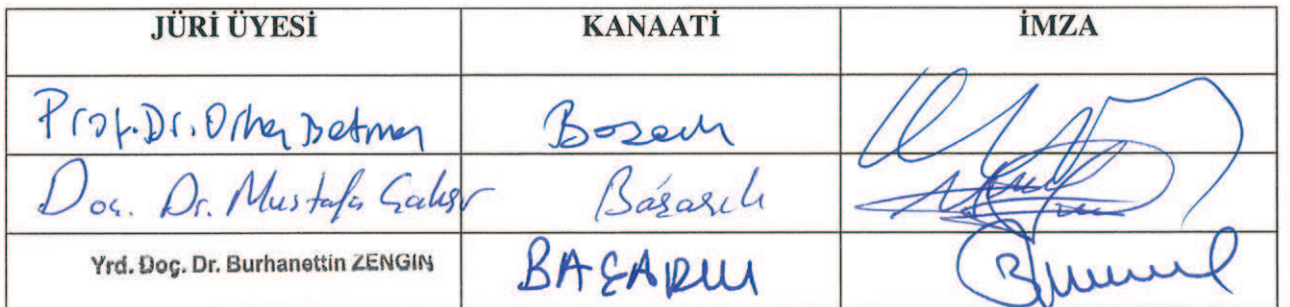 JÜRİ ÜYESİ KANAATİ İMZA
Prof. Dr. Orhan Batman Başarılı
Doç. Dr. Mustafa Başarılı
Yrd. Doç. Dr. Burhanettin ZENGİN BAŞARILI